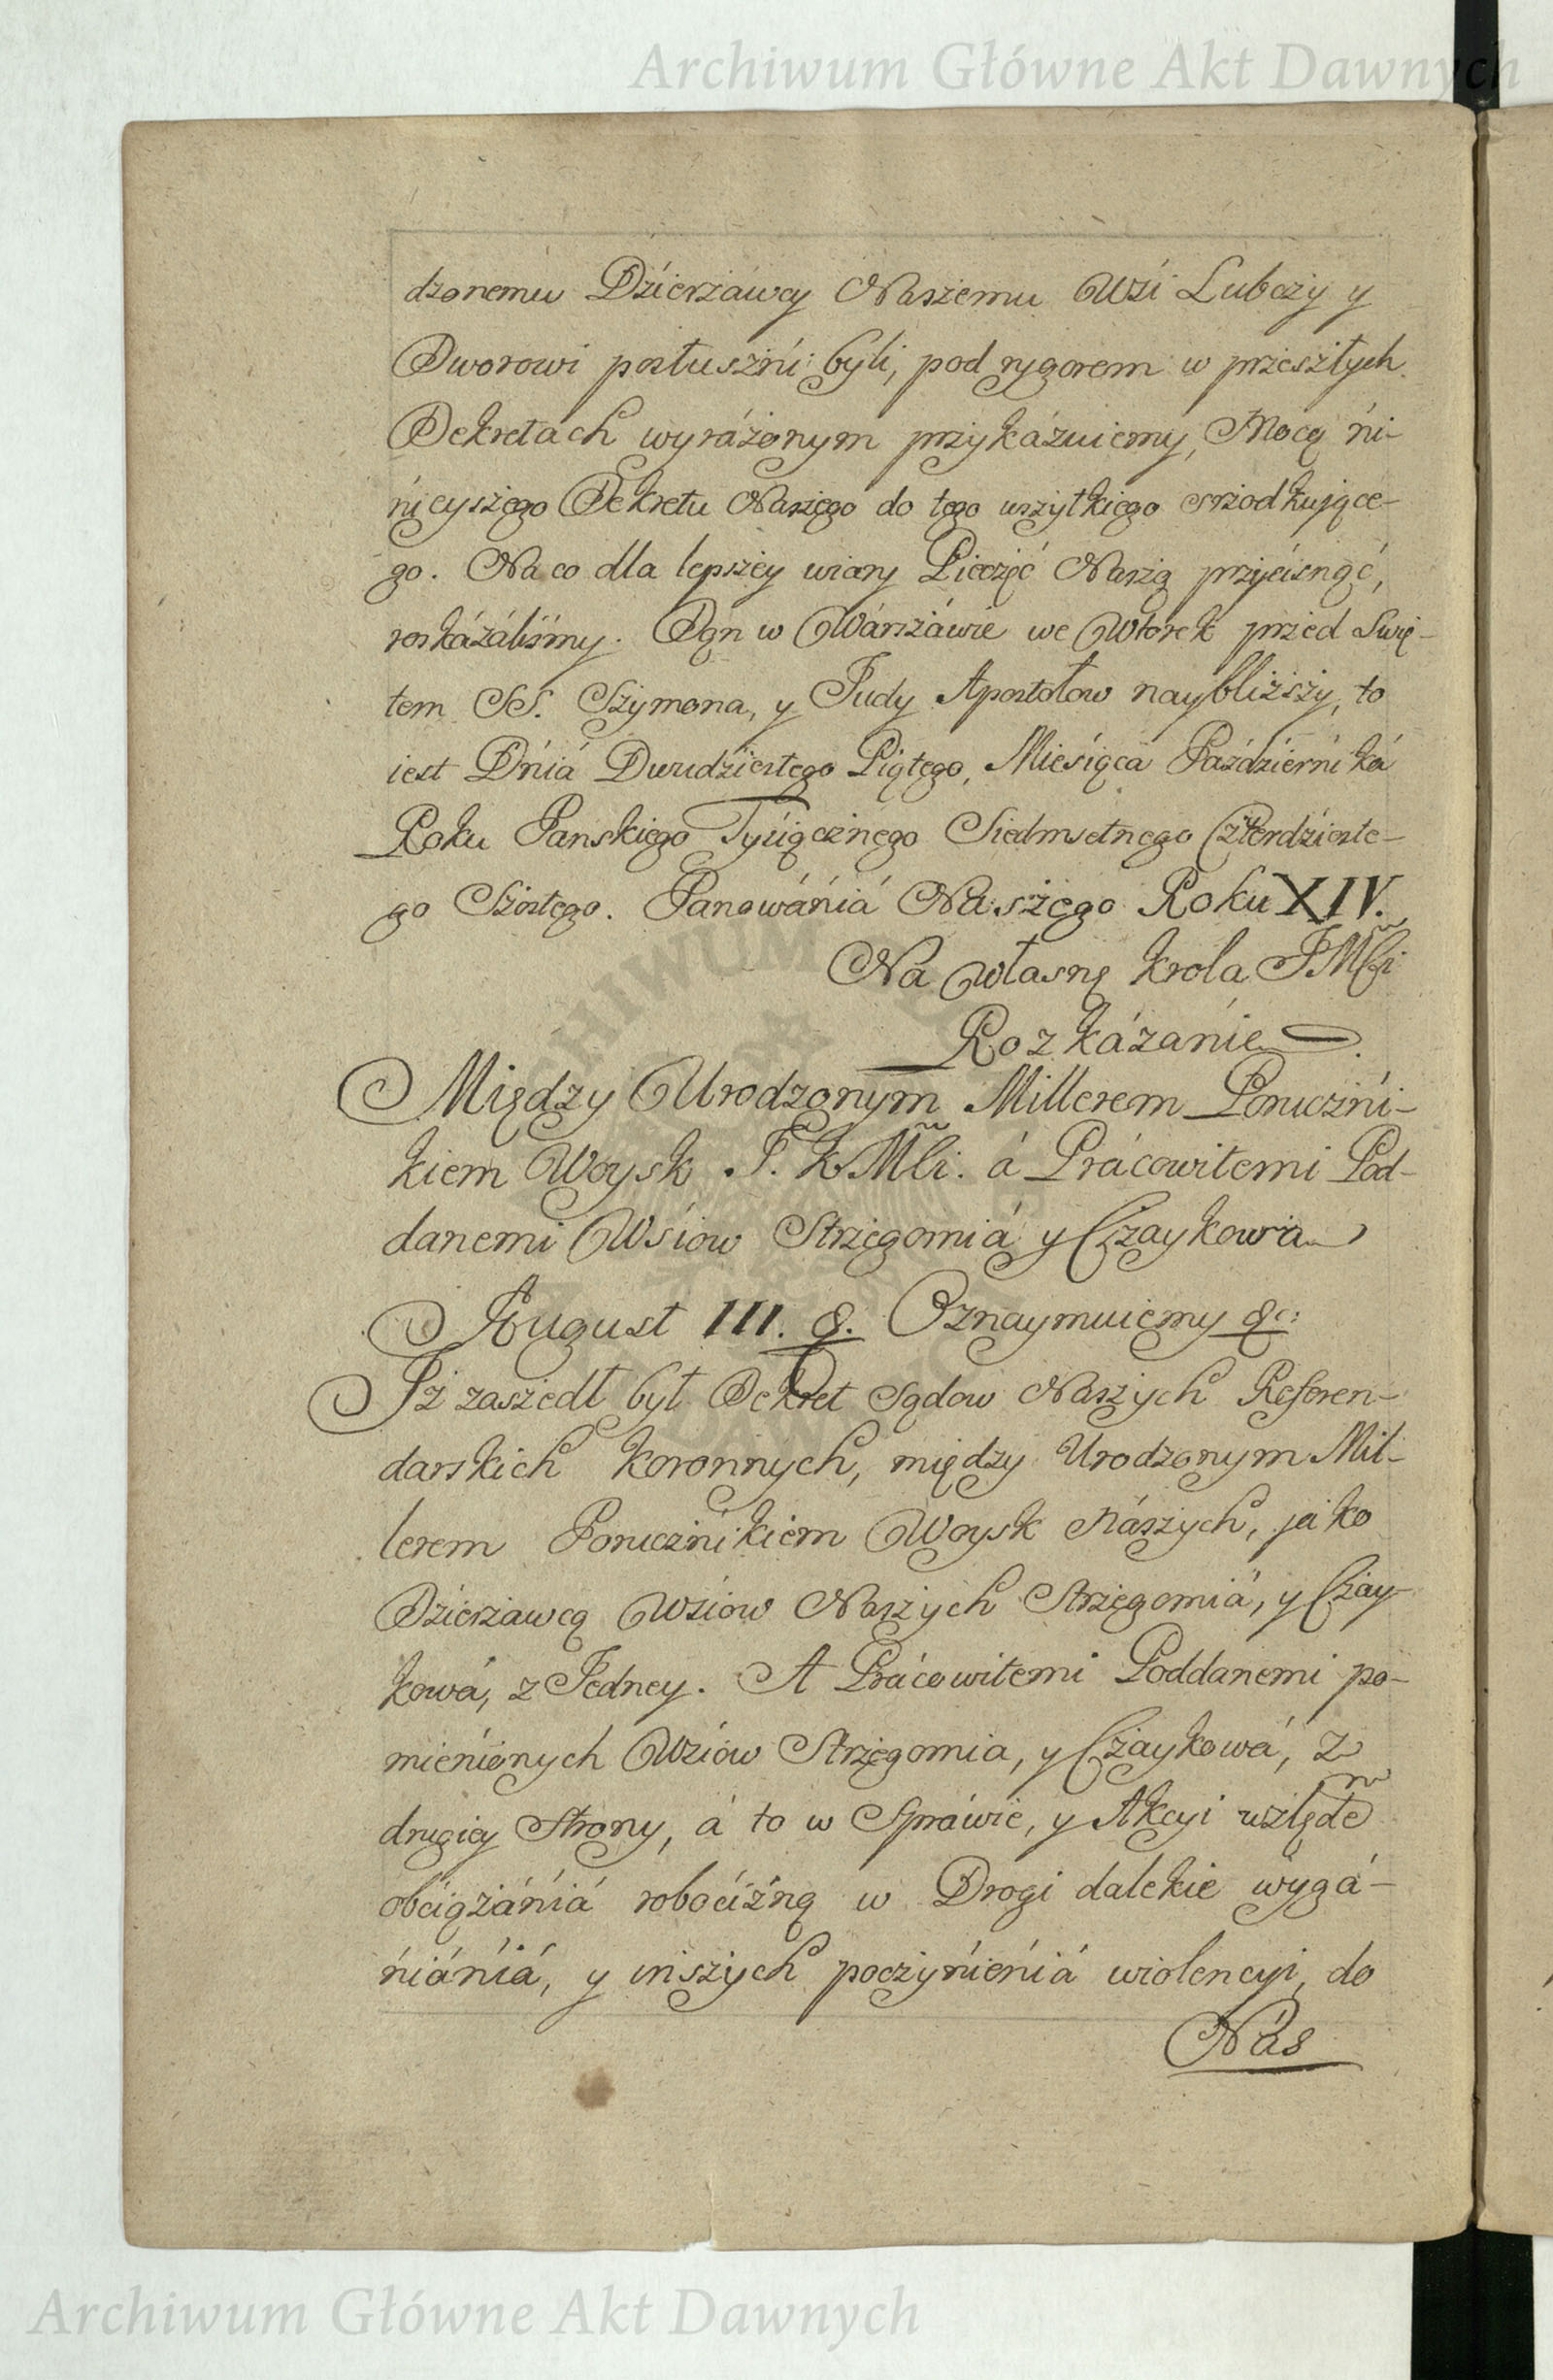 Archiwum Główne Akt Dawnych
dzonemu Dźierżáwcy Naszemu Wśi Lubczy y
Dworowi posłuszńi byli, pod rygorem w przeszłych
Dekretách wyráżonym przykázuiemy, Mocą ńi-
ńieyszego Dekretu Naszego do tego wszytkiego srzodkujące-
go. Na co dla lepszey wiary Pieczęć Naszą przyćisnąć,
roskázáliśmy. Dan w Wárszáwie we Wtorek przed Swię-
tem SS. Szymona, y Judy Apostołow naybliższy, to
iest Dńiá Dwudźiestego Piątego, Mieśiąca Paźdźierńiká
Roku Panskiego Tyśiącznego Siedmsetnego Czterdźieste-
go Szostego. Panowáńiá Naszego Roku XIV.
Na Własne Krola JMśći
Rozkázańie
Między Urodzonym Millerem Poruczńi-
kiem Woysk J. K Mśći. á Prácowitemi Pod-
danemi Wśiow Strzegomiá y Czaykowa
August III. &. Oznaymuiemy &c:
Jż zaszedł był Dekret Sądow Naszych Referen-
darskich Koronnych, między Urodzonym Mil-
lerem Poruczńikiem Woysk Nászych, jako
Dźierżawcą Wśiow Naszych Strzegomiá, y Czay-
kowá, z Jedney. A Prácowitemi Poddanemi po-
mieńionych Wśiow Strzegomia, y Czaykowá, z
drugiey Strony, á to w Spráwie, y Akcyi wzlęde
obćiążáńiá roboćizną w Drogi dalekie wygá-
ńiáńiá, y inszych poczyńieńiá wiolencyi, do
Nás
Archiwum Główne Akt Dawnych